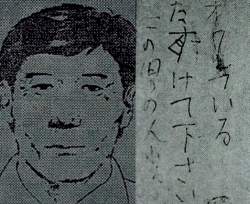 オワれている
たすけて下さい
この男の人